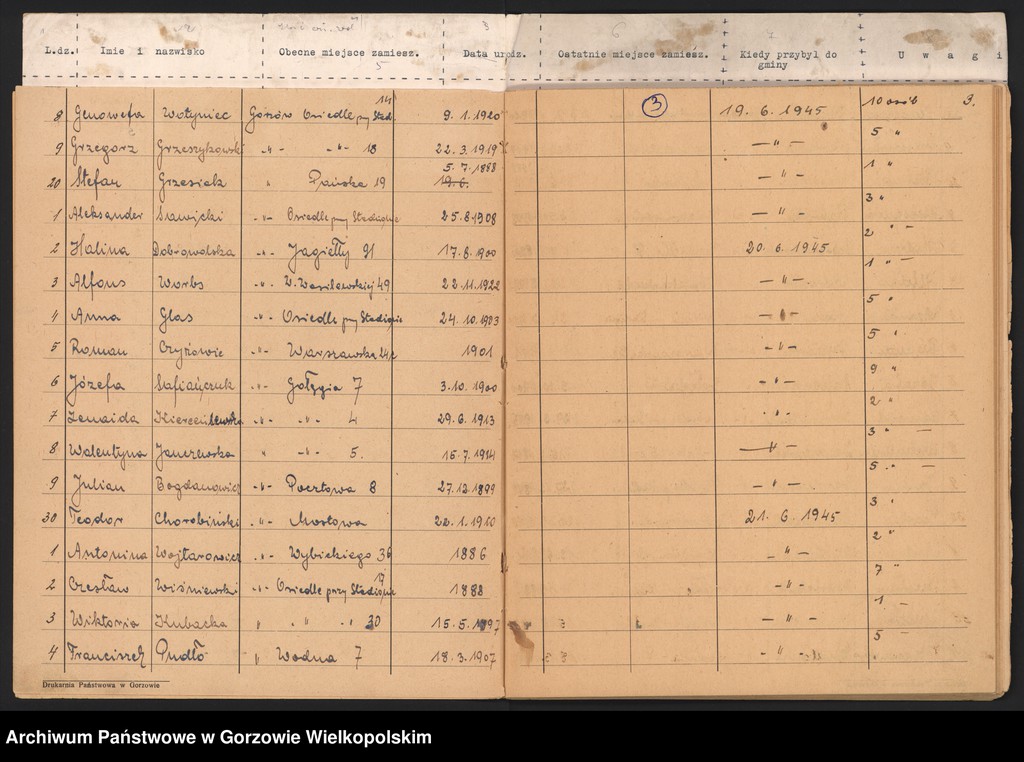 L.dz. Imie i nazwisko Obecne miejsce zamiesz. Data urodz. Ostatnie miejsce zamiesz. Kiedy przybył do gminy U w a g i
3.
8 Genowefa Wołyniec Gorzów Osiedle przy Stad. 14 9.1.1920 3 19.6.1945 10 osób
9 Grzegorz Grzeszykowski -"- -"- 18 22.3.1919 -"- 5 "
20 Stefan Grzesiak " Pańska 19 19.6. 5.7.1888 -"- 1 "
1 Aleksander Sawicki -"- Osiedle przy Stadionie 25.8.1908 -"- 3 "
2 Halina Dobrowolska -"- Jagiełły 91 17.8.1900 20.6.1945 2 " -
3 Alfons Worbs -"- W. Wasilewskiej 49 22.11.1922 -"- 1 " -
4 Anna Glas -"- Osiedle przy Stadionie 24.10.1903 -"- 5 "
5 Roman -"- Warszawska 1901 -"- 5 "
6 Józefa Safiańczuk -"- 7 3.10.1900 -"- 9 "
7 Zenaida -"- -"- 4 29.6.1913 -"- 2 "
8 Walentyna Janczewska " -"- 5. 15.7.1914 -"- 3 " -
9 Julian Bogdanowicz -"- Pocztowa 8 27.12.1899 -"- 5 " -
30 Teodor Chorobiński -"- Mostowa 22.1.1910 21.6.1945 3 "
1 Antonina Wojtarowicz -"- Wybickiego 36 1886 -"- 2 "
2 Czesław Wiśniewski -"- Osiedle przy Stadionie 17 1888 -"- 7 "
3 Wiktoria Kubacka " " " 30 15.5.1897 -"- 1 -
4 Franciszek Pudło " Wodna 7 18.3.1907 -"- 5 -
Drukarnia Państwowa w Gorzowie
Archiwum Państwowe w Gorzowie Wielkopolskim